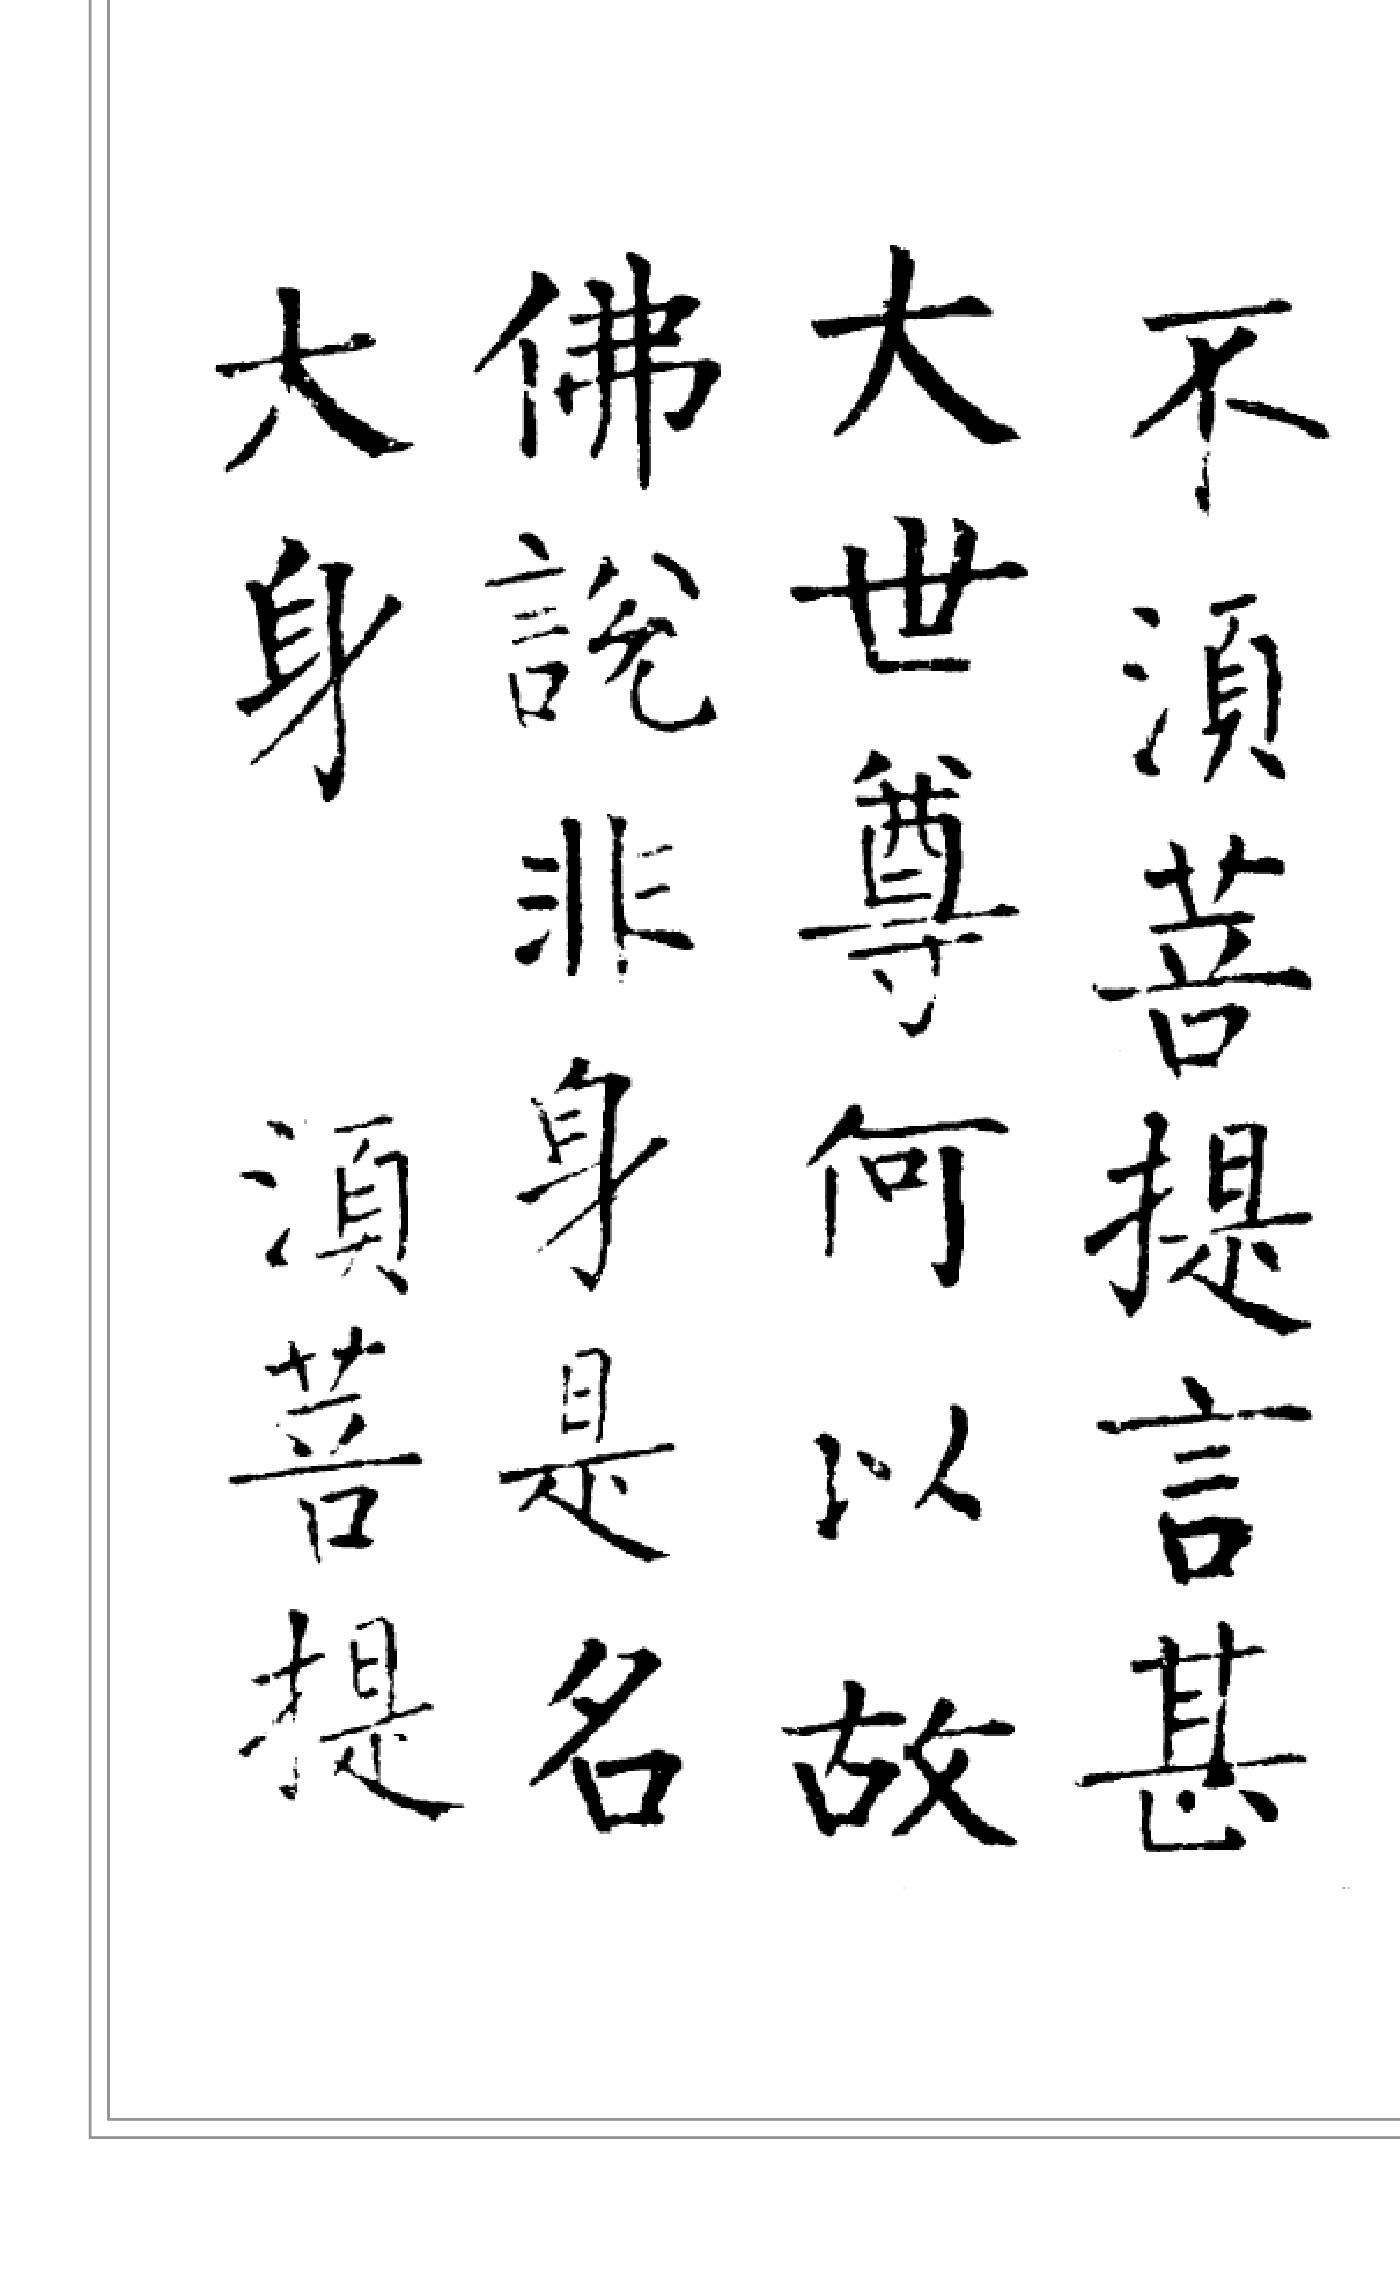 不須菩提言甚
大世尊何以故
佛說非身是名
大身 須菩提